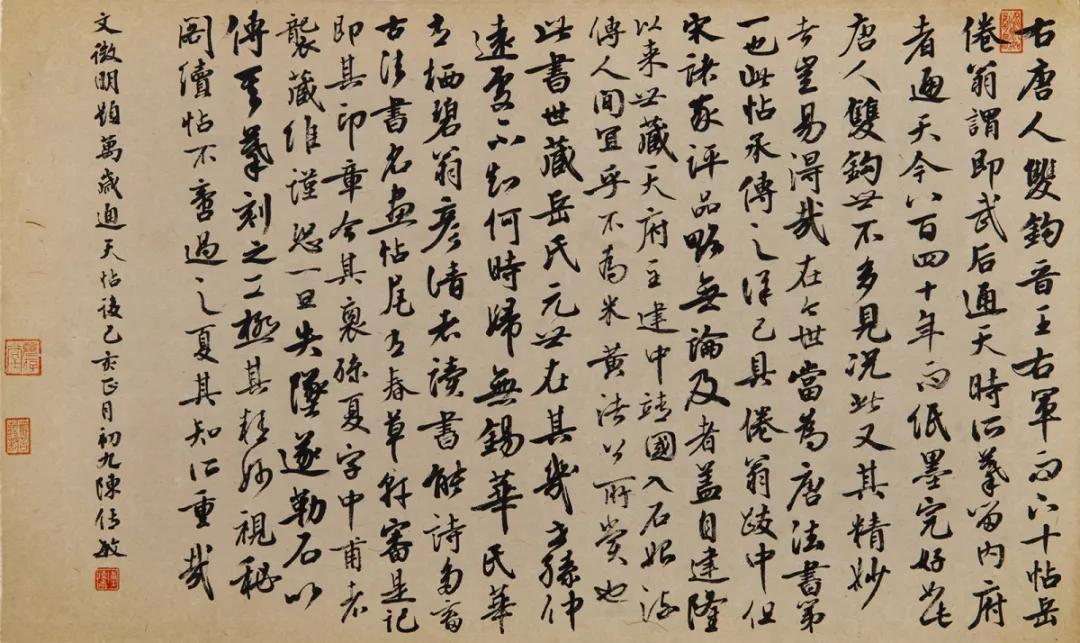 右唐人雙鈎晉王右軍而下十帖岳
倦翁謂即武后通天時所摹留内府
者通天今八百四十年而紙墨完好如此
唐人雙鈎世不多見況此又其精妙
者豈易得哉在今世當為唐法書第
一也此帖承傳之詳已具倦翁跋中但
宋諸家評品略無論及者蓋自建隆
以來世藏天府至建中靖國入石始流
傳人間宜乎不為米黃諸公所賞也
此書世藏岳氏元世在其幾世孫仲
遠處不知何時歸無錫華氏華
有栖碧翁彥清者讀書能詩多畜
古法書名畫帖尾有春草軒審定記
即其印章今其裔孫夏字中甫者
襲藏維謹恐一旦失墜遂勒石以
傳其摹刻之工極其精妙視秘
閣續帖不啻過之夏其知所重哉
文徵明題萬歲通天帖後己亥正月初九陳傳敏